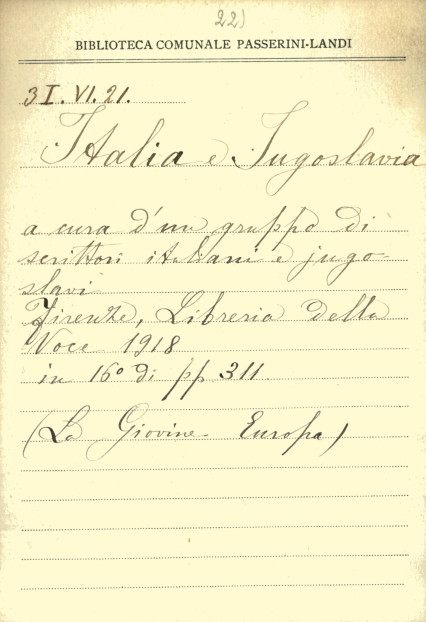 22)
BIBLIOTECA COMUNALE PASSERINI-LANDI
3I.VI.21.
Italia e Jugoslavia
a cura d'un gruppo di
scrittori italiani e jugo-
slavi
Firenze, Libreria della
Voce 1918
in 16° di pp 311
(La Giovine Europa)